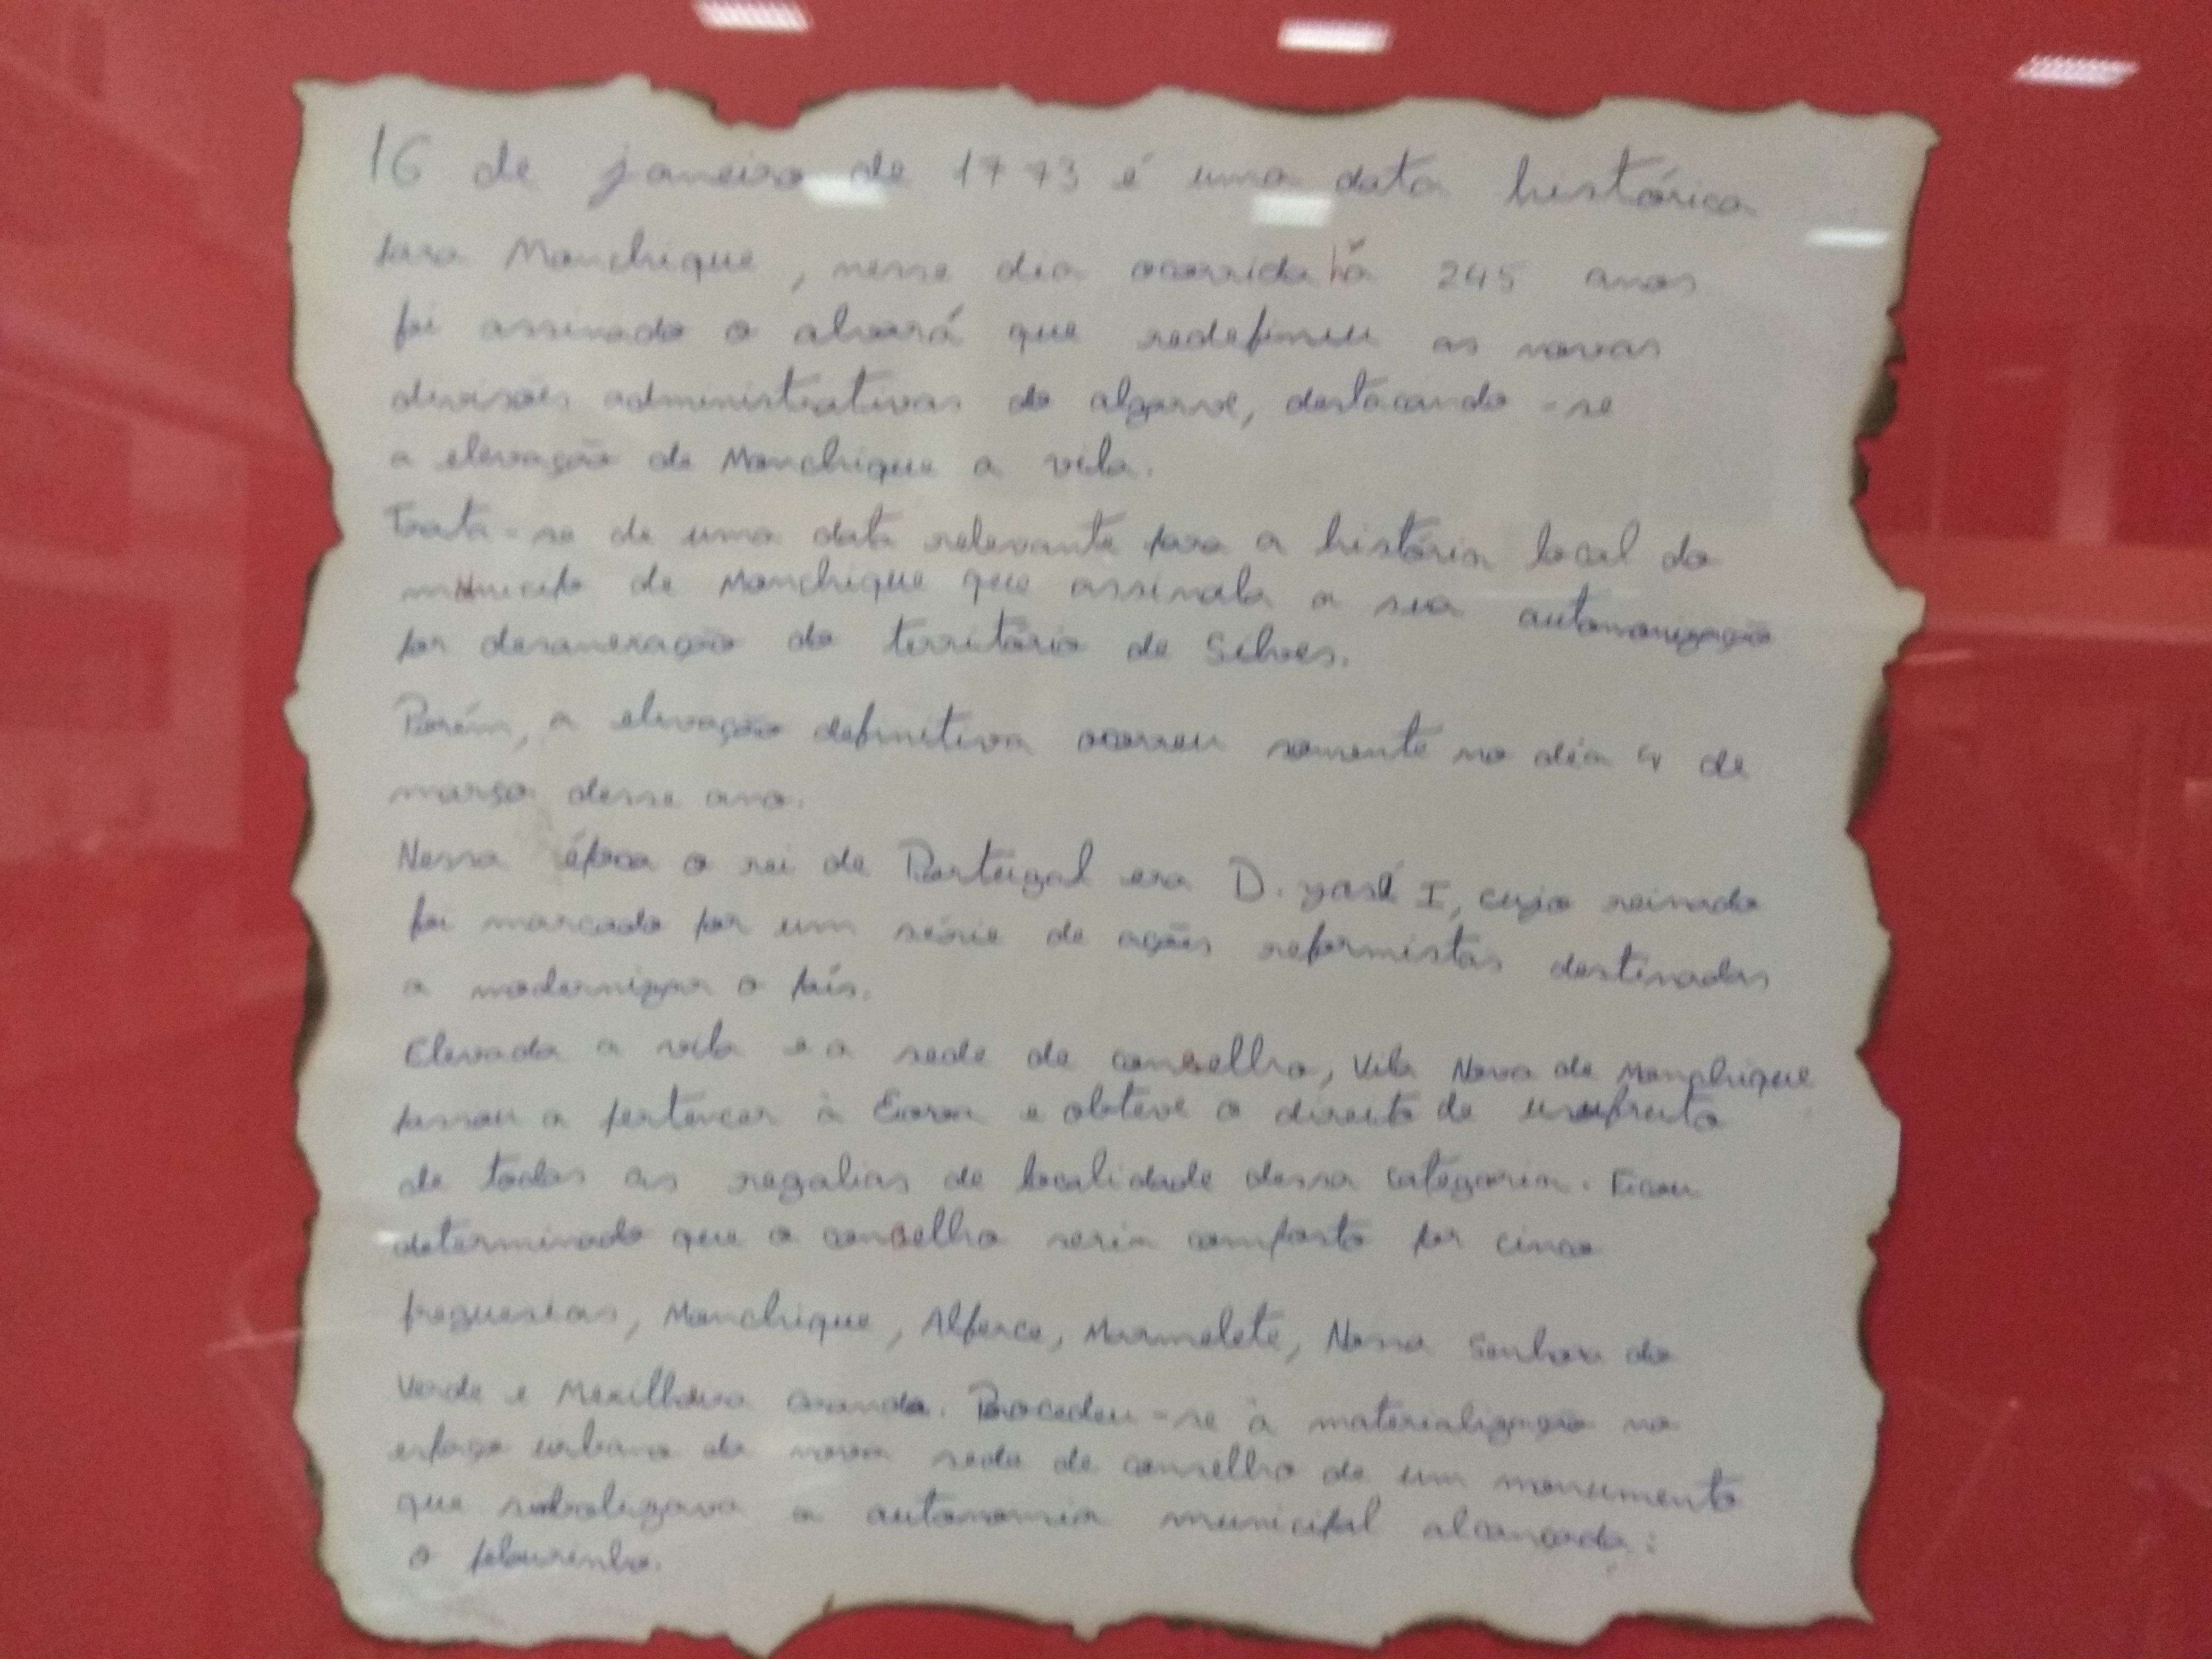 16 de janeiro de 1773 é uma data histórica
para Manchique, nesse dia ocorrida há 245 anos
foi assinado o alvará que redefiniu as novas
divisões administrativas do algarve, destacando-se
a elevação de Monchique a vila.
Trata-se de uma data relevante para a história local do
município de Monchique que assinala a sua autonomização
por desaneração do território de Silves.
Porém, a elevação definitiva ocorreu somente no dia 4 de
março desse ano.
Nessa época o rei de Portugal era D. José I, cujo reinado
foi marcado por um série de ações reformistas destinadas
a modernizar o país.
Elevada a vila e a sede de conselho, Vila Nova de Monchique
passou a pertencer à Coroa e obteve o direito de usufruto
de todas as regalias de localidade dessa categoria. Ficou
determinado que o concelho seria composto por cinco
freguesias, Monchique, Alferce, Marmelete, Nossa Senhora do
Verde e Mexilhoeira Grande. Procedeu-se à materialização no
espaço urbano da nova sede de conselho de um monumento
que simbolizava a autonomia municipal alcançada:
o pelourinho.